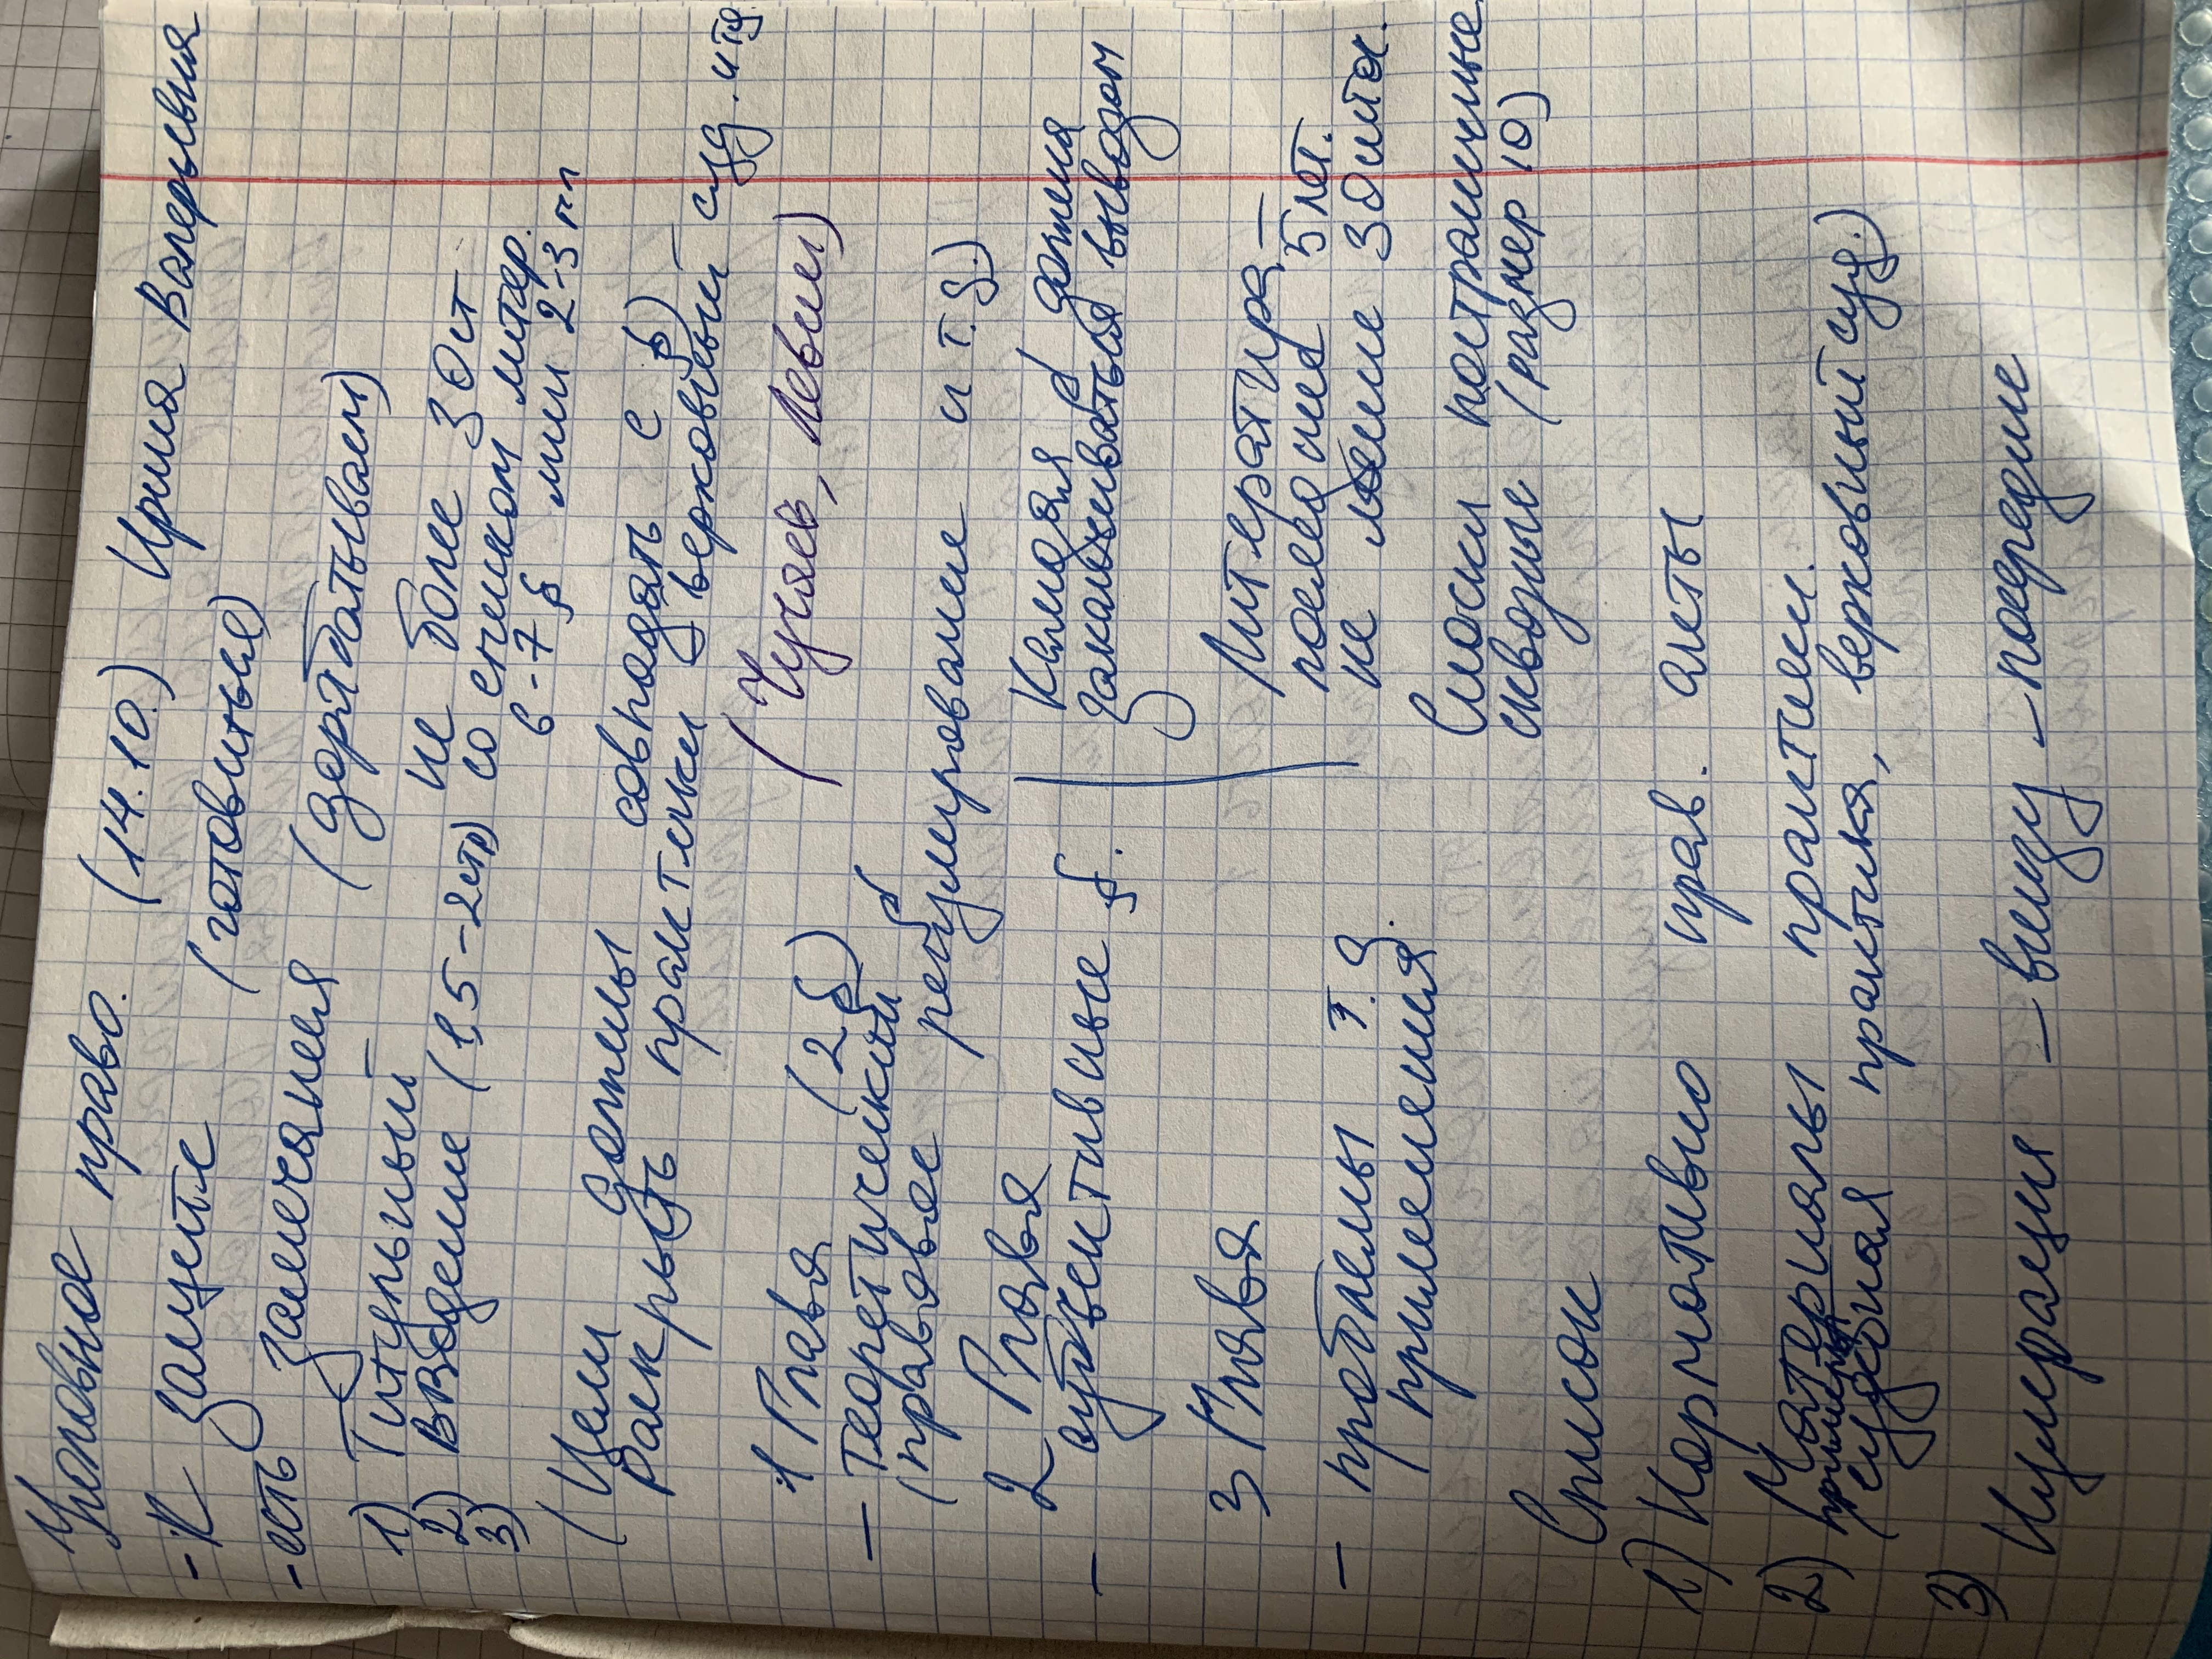 Уголовное право. (14.10.) Ирина Валерьевна
- К защите (готовиться)
- есть замечания (дорабатываем)
1) Титульный – не более 30 ст
2) ВВдение (1,5-2стр) со списком литер.
3) 6-7 § мин 2-3 гл
(Цели должны совпадать с §)
раскрыть практики верховный – суд. и тд.
(Чучаев, Левин)
1 Глава (2 §)
– Теоретический §
(правовое регулирование и т.д.)
2 Глава
– субъективные §.
Каждая § должна
заканчиваться выводом
3 Глава
Литература –
последние 5 лет.
– проблемы т. д.
применения
не менее 30 иток.
Сноски постраничные
сквозные (размер 10)
Список
1) Нормативно прав. акты
2) Материалы практики.
примеры
(судебная практика, верховный суд.)
3) Нумерация – внизу – посредине